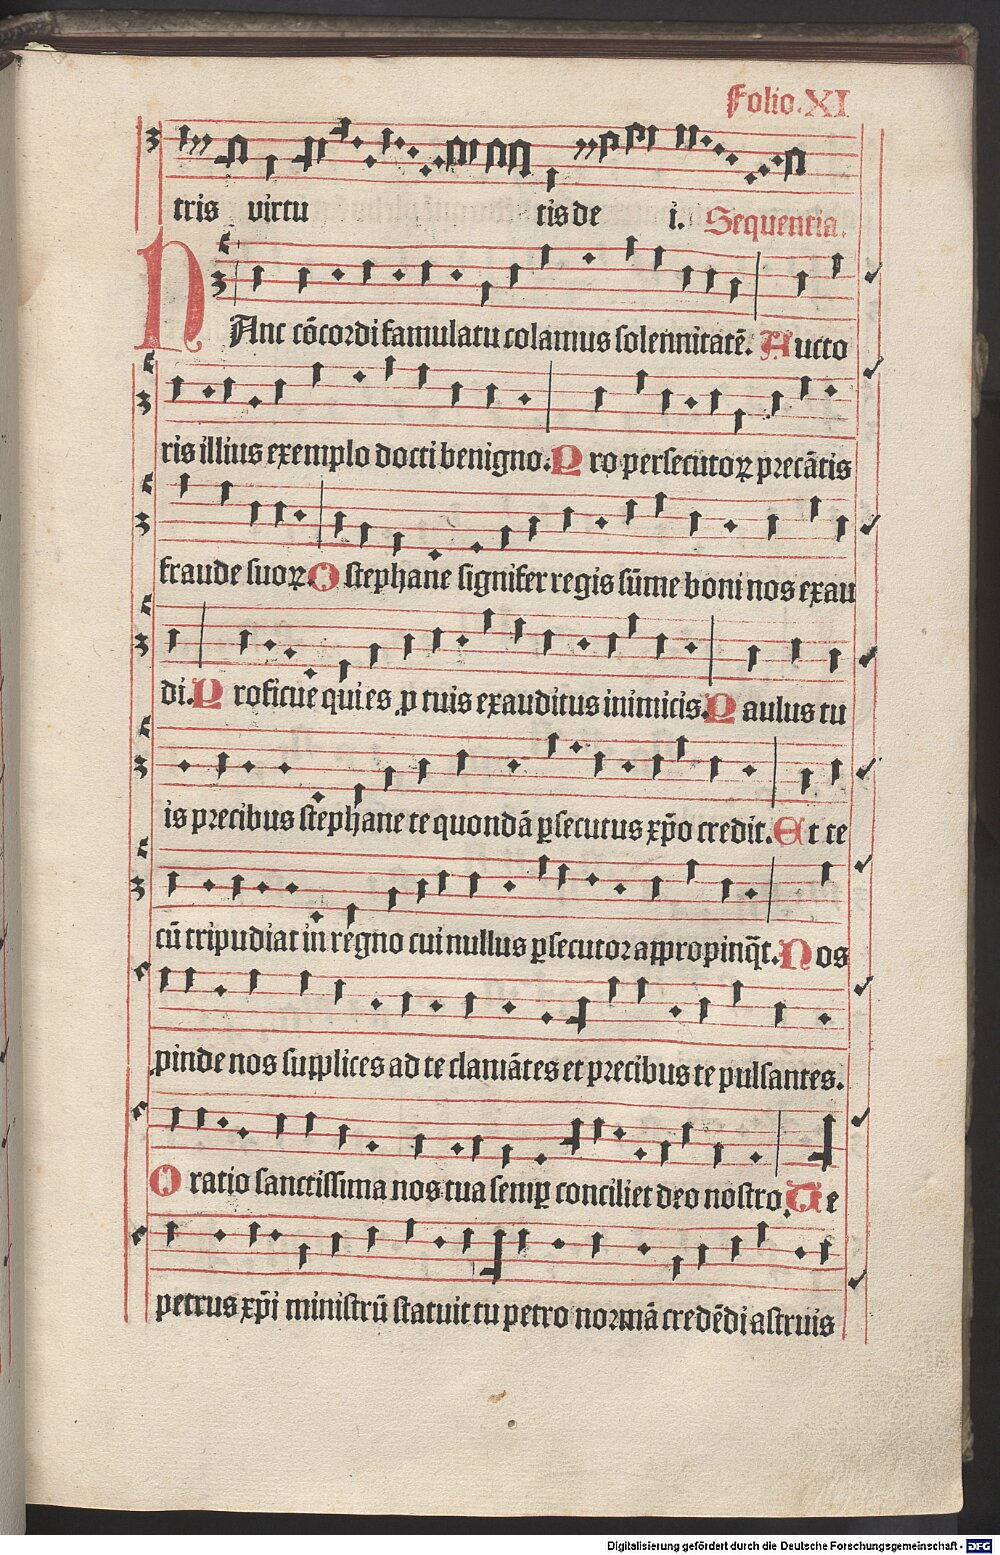 Folio. XI
tris virtu tis de i. Sequentia.
HAnc cōcordi famulatu colamus solennitatē. Aucto
ris illius exemplo docti benigno. Pro persecutoꝝ precātis
fraude suoꝝ. O stephane signifer regis sūme boni nos exau
di. Proficue qui es ꝓ tuis exauditus inimicis. Paulus tu
is precibus stephane te quondā ꝑsecutus xp̄o credit. Et te
cū tripudiat in regno cui nullus ꝑsecutor appropinq̄t. Nos
ꝓinde nos supplices ad te clamātes et precibus te pulsantes.
Oratio sanctissima nos tua semꝑ conciliet deo nostro. Te
petrus xp̄i ministrū statuit tu petro normā credēdi astruis
Digitalisierung gefördert durch die Deutsche Forschungsgemeinschaft - DFG